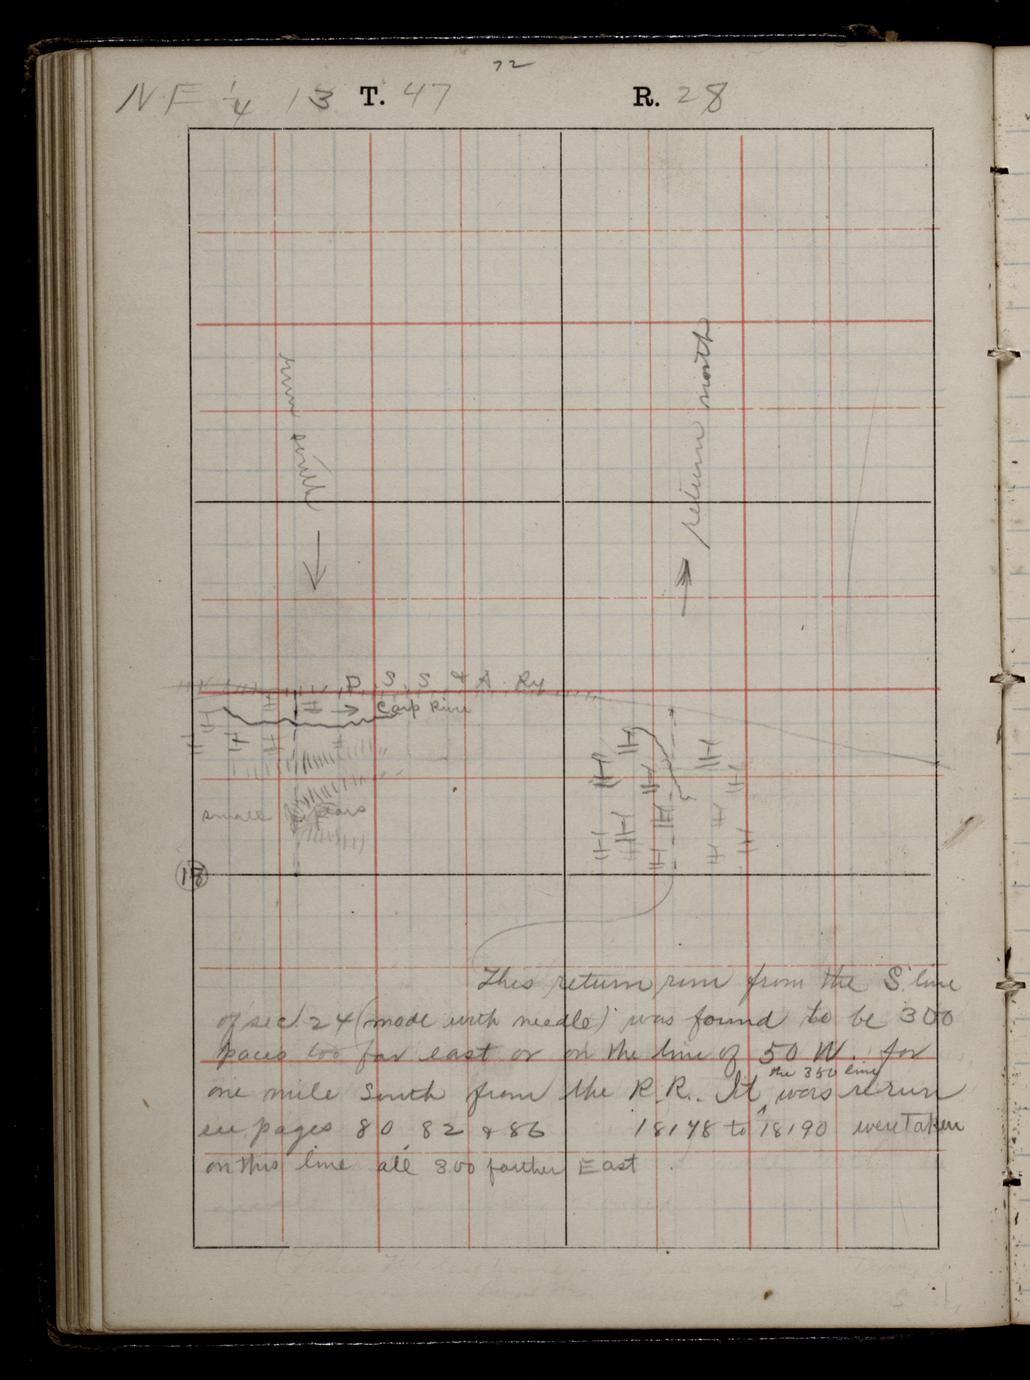 72
NE 1/4 13 T. 47 R. 28
return north
D. S. S. & A. Ry
Carp River
small
18
This return run from the S. line
of sec 24 (made with needle) was found to be 300
paces too far east or on the line of 50 W. for
one mile South from the R R. It the 350 line was rerun
see pages 80, 82 & 86 18178 to 18190 were taken
on this line all 300 farther East